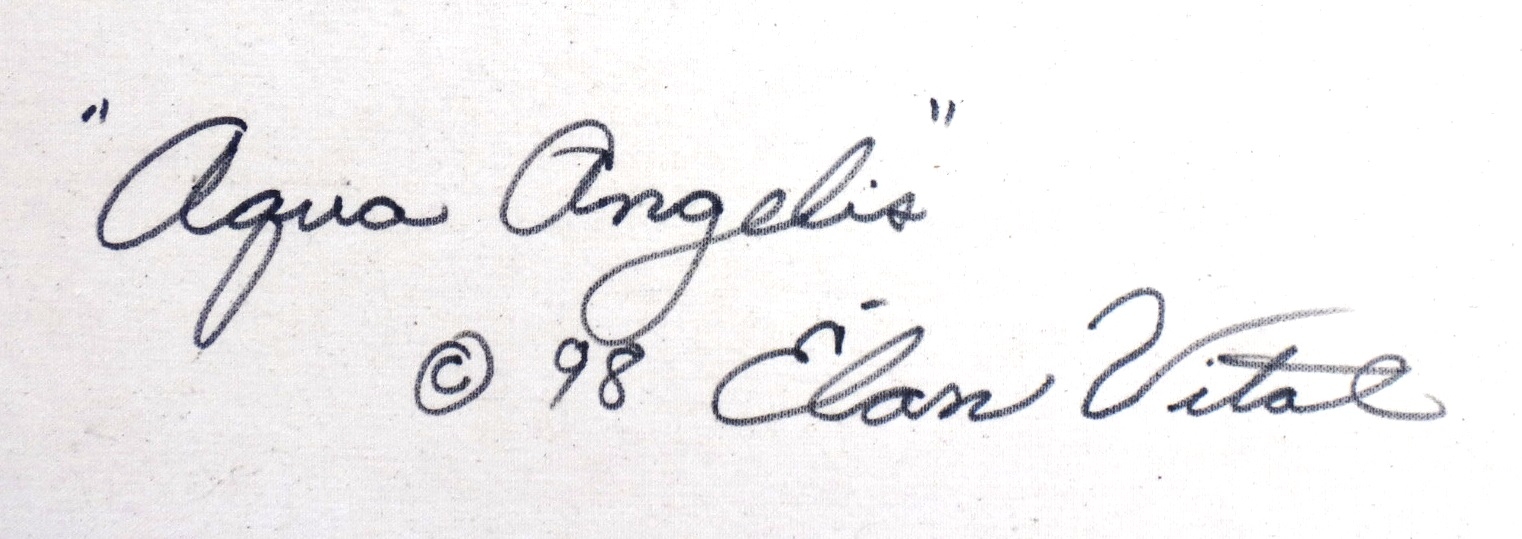 "Aqua Angelis"
© 98 Élan Vital